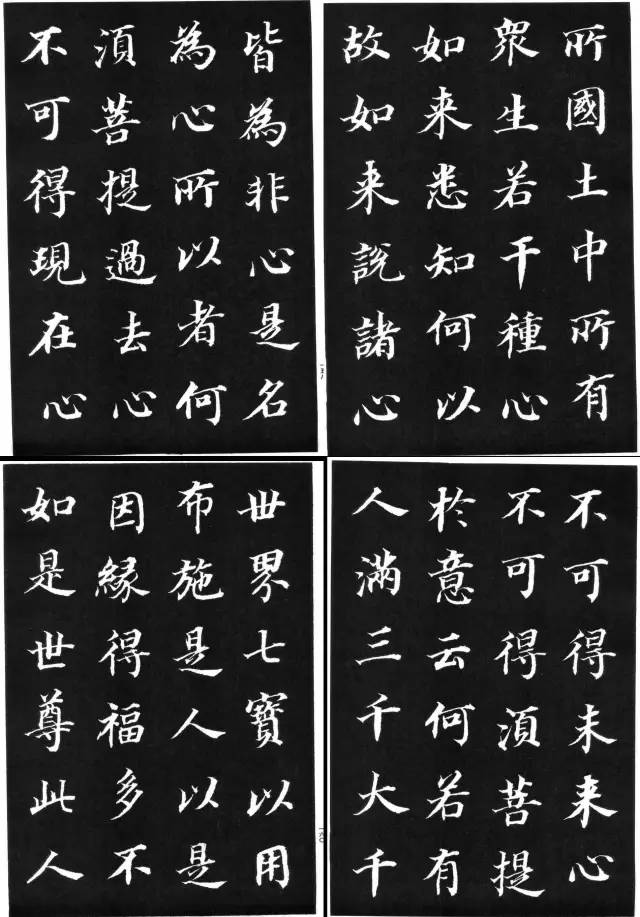 所國土中所有
衆生若干種心
如来悉知何以
故如来說諸心
皆為非心是名
為心所以者何
須菩提過去心
不可得現在心
不可得未来心
不可得須菩提
於意云何若有
人滿三千大千
世界七寶以用
布施是人以是
因緣得福多不
如是世尊此人